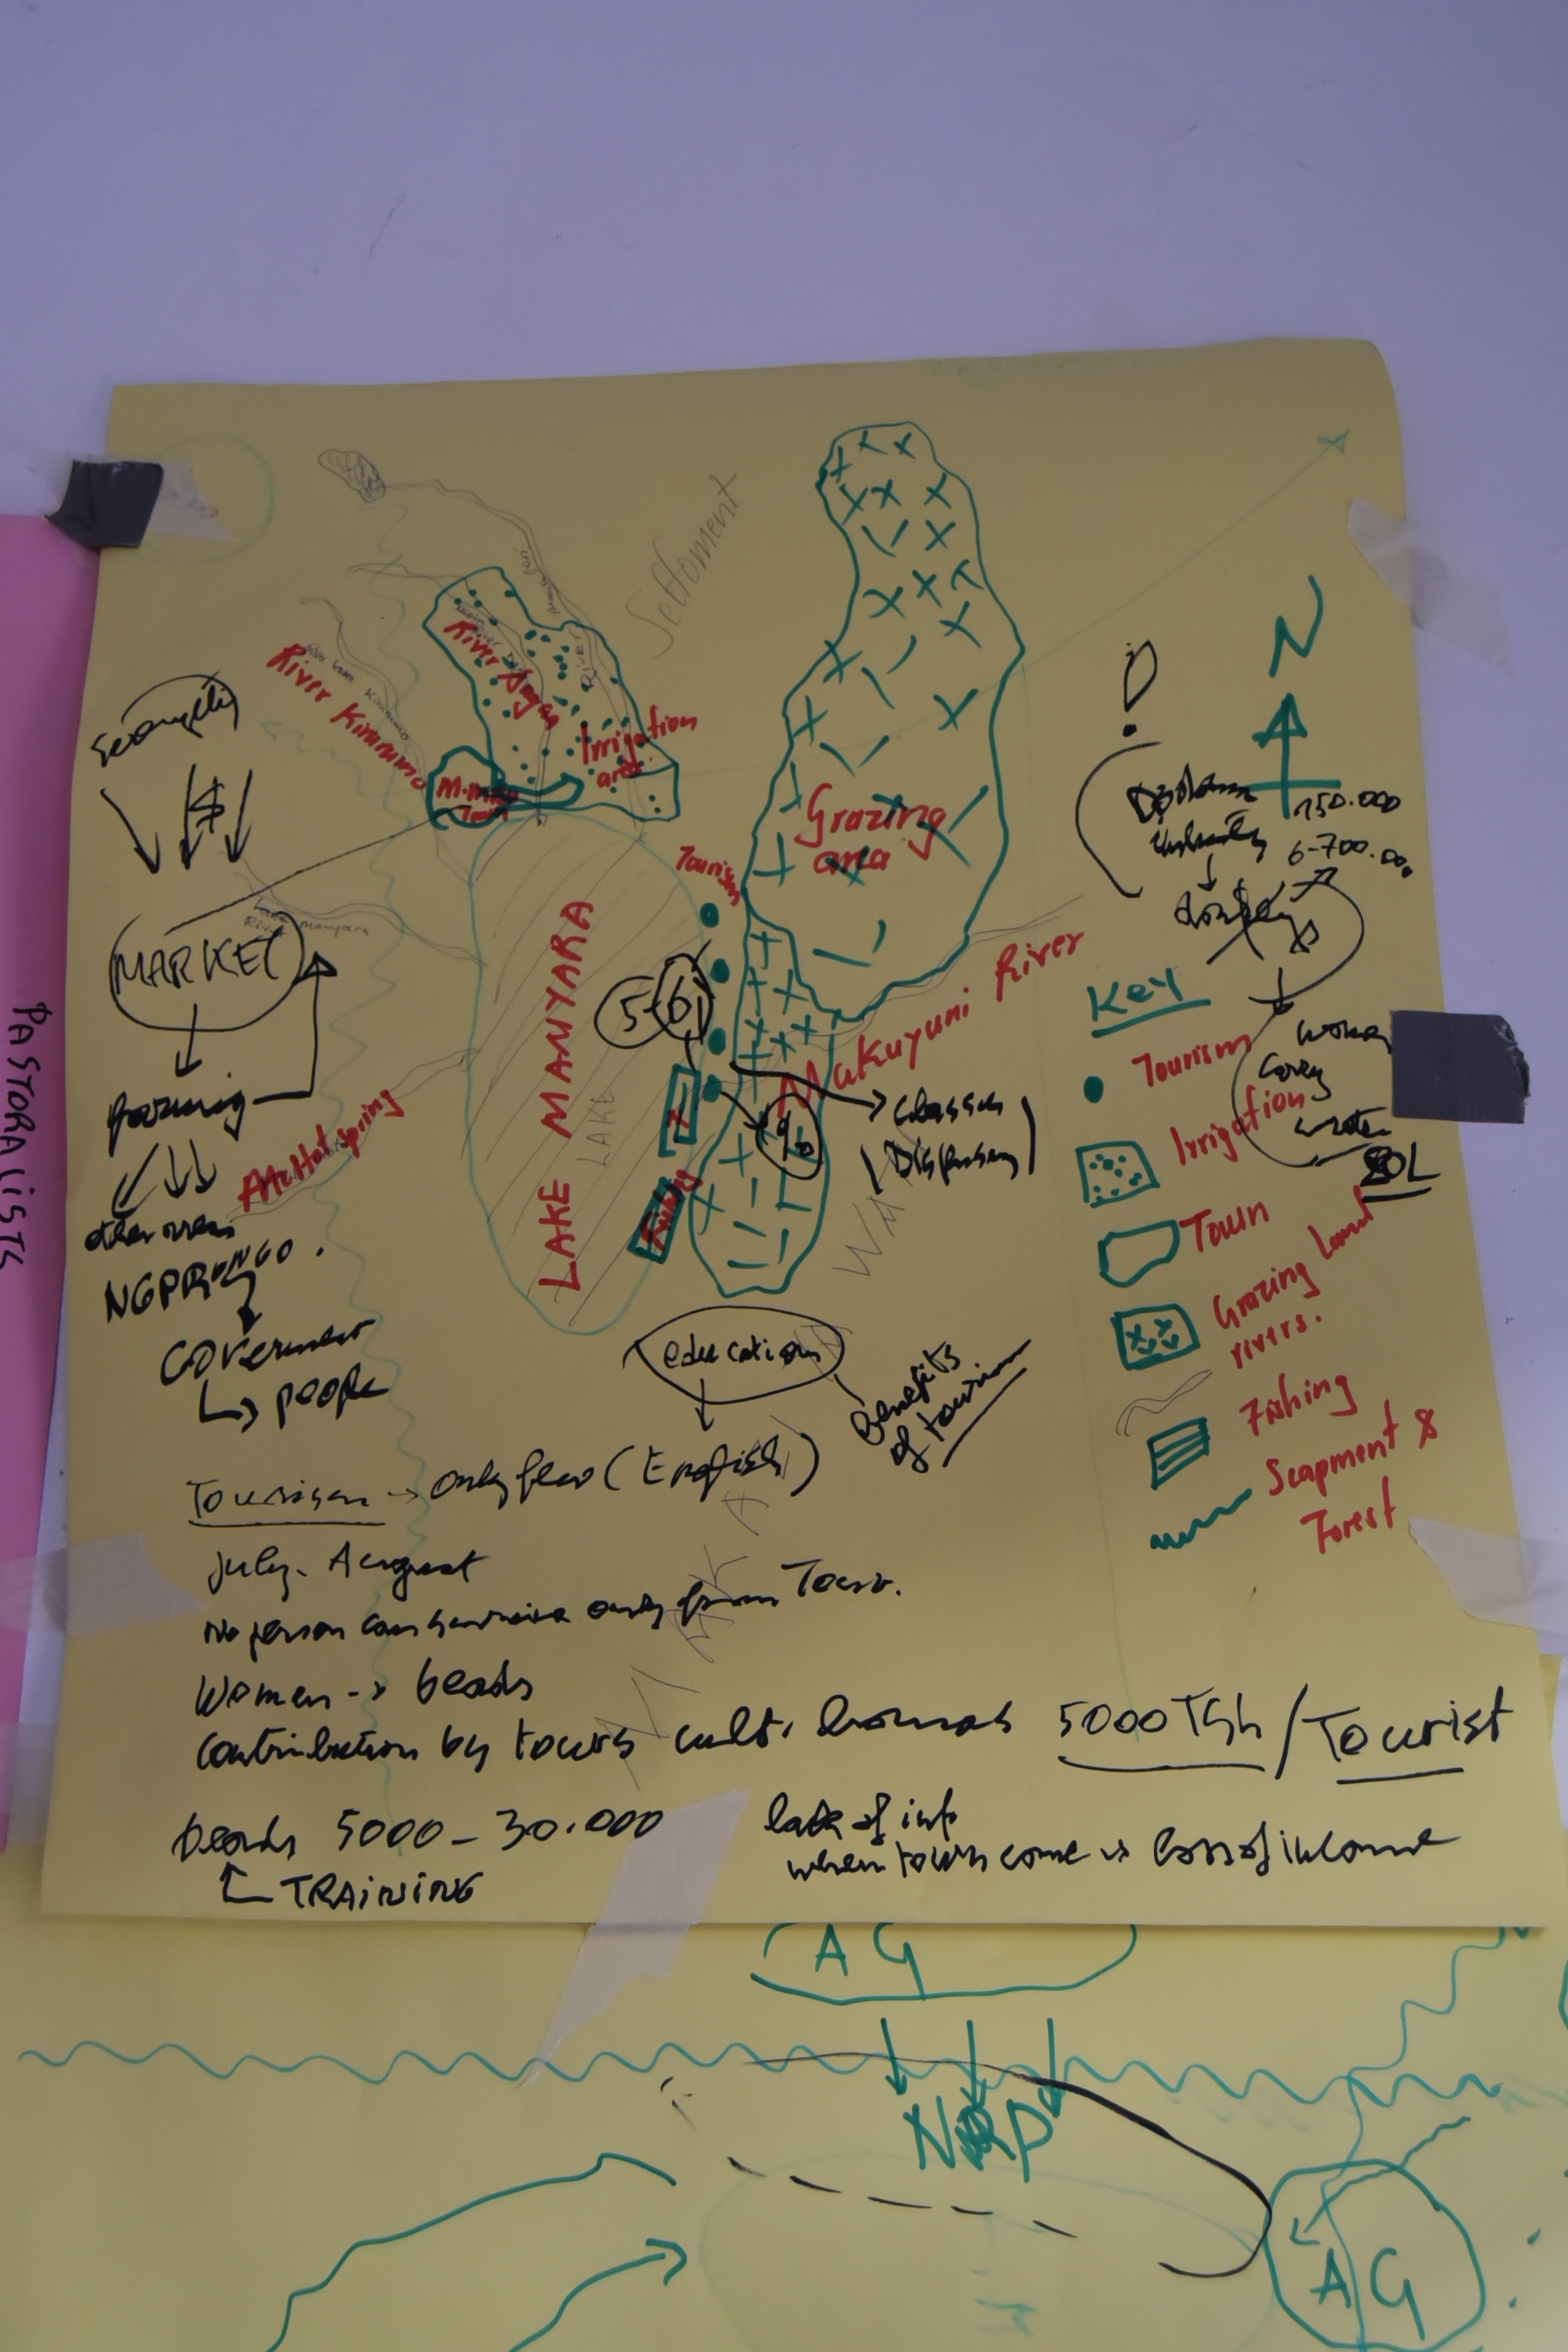 Settoment
River
River Kirurumo
Irrigation
area
M.
Town
MARKET
farming
other
NGPR
GOVernment
people
Tourism
Grazing
area
LAKE MANYARA
LAKE
Lake Manyara
River
Makuyuni River
5-6
Hot spring
classes
Dispensary
education
Benefits
of tourism
N
150.000
6-700.000
donkeys
women
carry
water
20L
Key
Tourism
Irrigation
Town
Grazing land
rivers.
Fishing
Scapment &
Forest
Tourism -> only few (English)
July - August
No person can survive only from Tour.
Women -> beads
Contribution by tours cult. bomas 5000 TSh/Tourist
beads 5000 - 30.000
TRAINING
lack of info
when tours come -> loss of income
PASTORALISTS
AG
NRP
AG